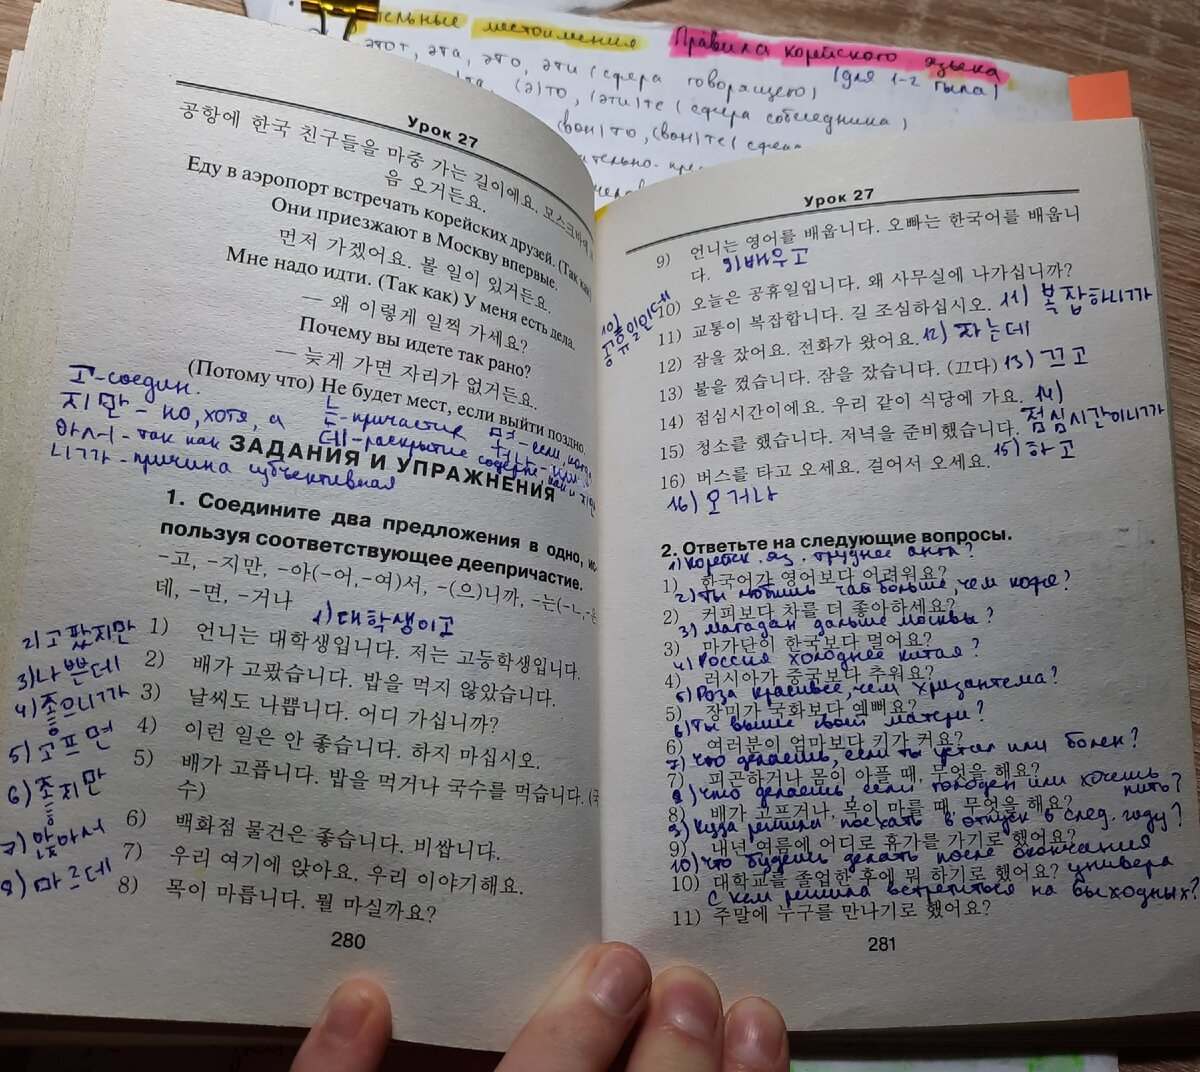 местоимения
Правила корейского языка
этот, эта, это, эти (сфера говорящего)
(э)то, (эти)те (сфера собеседника)
(вон)то, (вон)те
Урок 27
공항에 한국 친구들을 마중 가는 길이에요. 모스크바에
음 오거든요.
Еду в аэропорт встречать корейских друзей. (Так как)
Они приезжают в Москву впервые.
먼저 가겠어요. 볼 일이 있거든요.
Мне надо идти. (Так как) У меня есть дела.
— 왜 이렇게 일찍 가세요?
Почему вы идете так рано?
— 늦게 가면 자리가 없거든요.
(Потому что) Не будет мест, если выйти поздно.
고-соедин.
지만 - но, хотя, а
는-причастие
면-если, когда
아서 - так как
데-раскрытие
니까-причина субъективная
ЗАДАНИЯ И УПРАЖНЕНИЯ
1. Соедините два предложения в одно, ис-
пользуя соответствующее деепричастие.
-고, -지만, -아(-어, -여)서, -(으)니까, -는(-ㄴ,
데, -면, -거나
1) 대학생이고
1) 언니는 대학생입니다. 저는 고등학생입니다.
2) 고팠지만
2) 배가 고팠습니다. 밥을 먹지 않았습니다.
3) 나쁜데
3) 날씨도 나쁩니다. 어디 가십니까?
4) 좋으니까
4) 이런 일은 안 좋습니다. 하지 마십시오.
5) 고프면
5) 배가 고픕니다. 밥을 먹거나 국수를 먹습니다.
수)
6) 좋지만
6) 백화점 물건은 좋습니다. 비쌉니다.
7) 앉아서
7) 우리 여기에 앉아요. 우리 이야기해요.
8) 마르데
8) 목이 마릅니다. 뭘 마실까요?
280
Урок 27
9) 언니는 영어를 배웁니다. 오빠는 한국어를 배웁니
다. 9) 배우고
10) 공휴일인데
10) 오늘은 공휴일입니다. 왜 사무실에 나가십니까?
11) 교통이 복잡합니다. 길 조심하십시오. 11) 복잡하니까
12) 잠을 잤어요. 전화가 왔어요. 12) 자는데
13) 불을 껐습니다. 잠을 잤습니다. (끄다) 13) 끄고
14) 점심시간이에요. 우리 같이 식당에 가요. 14)
점심시간이니까
15) 청소를 했습니다. 저녁을 준비했습니다.
15) 하고
16) 버스를 타고 오세요. 걸어서 오세요.
16) 오거나
2. Ответьте на следующие вопросы.
1) корейск. яз. труднее англ?
1) 한국어가 영어보다 어려워요?
2) Ты любишь чай больше, чем кофе?
2) 커피보다 차를 더 좋아하세요?
3) Магадан дальше Москвы?
3) 마가단이 한국보다 멀어요?
4) Россия холоднее Китая?
4) 러시아가 중국보다 추워요?
5) Роза красивее, чем хризантема?
5) 장미가 국화보다 예뻐요?
6) Ты выше своей матери?
6) 여러분이 엄마보다 키가 커요?
7) Что делаешь, если ты устал или болен?
7) 피곤하거나 몸이 아플 때, 무엇을 해요?
8) Что делаешь, если голоден или хочешь пить?
8) 배가 고프거나, 목이 마를 때, 무엇을 해요?
9) Куда решили поехать в отпуск в след. году?
9) 내년 여름에 어디로 휴가를 가기로 했어요?
10) Что будешь делать после окончания универа
10) 대학교를 졸업한 후에 뭐 하기로 했어요?
С кем решила встретиться на выходных?
11) 주말에 누구를 만나기로 했어요?
281